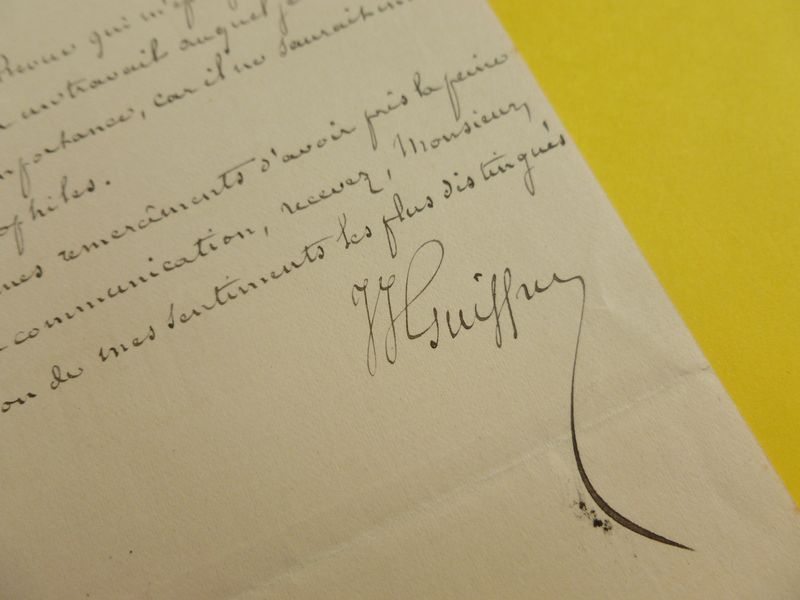 qui m'
travail auquel je
importance, car il ne saurait
ophiles.
mes remerciments d'avoir pris la peine
communication, recevez, Monsieur,
on de mes sentiments les plus distingués
JJ Guiffrey